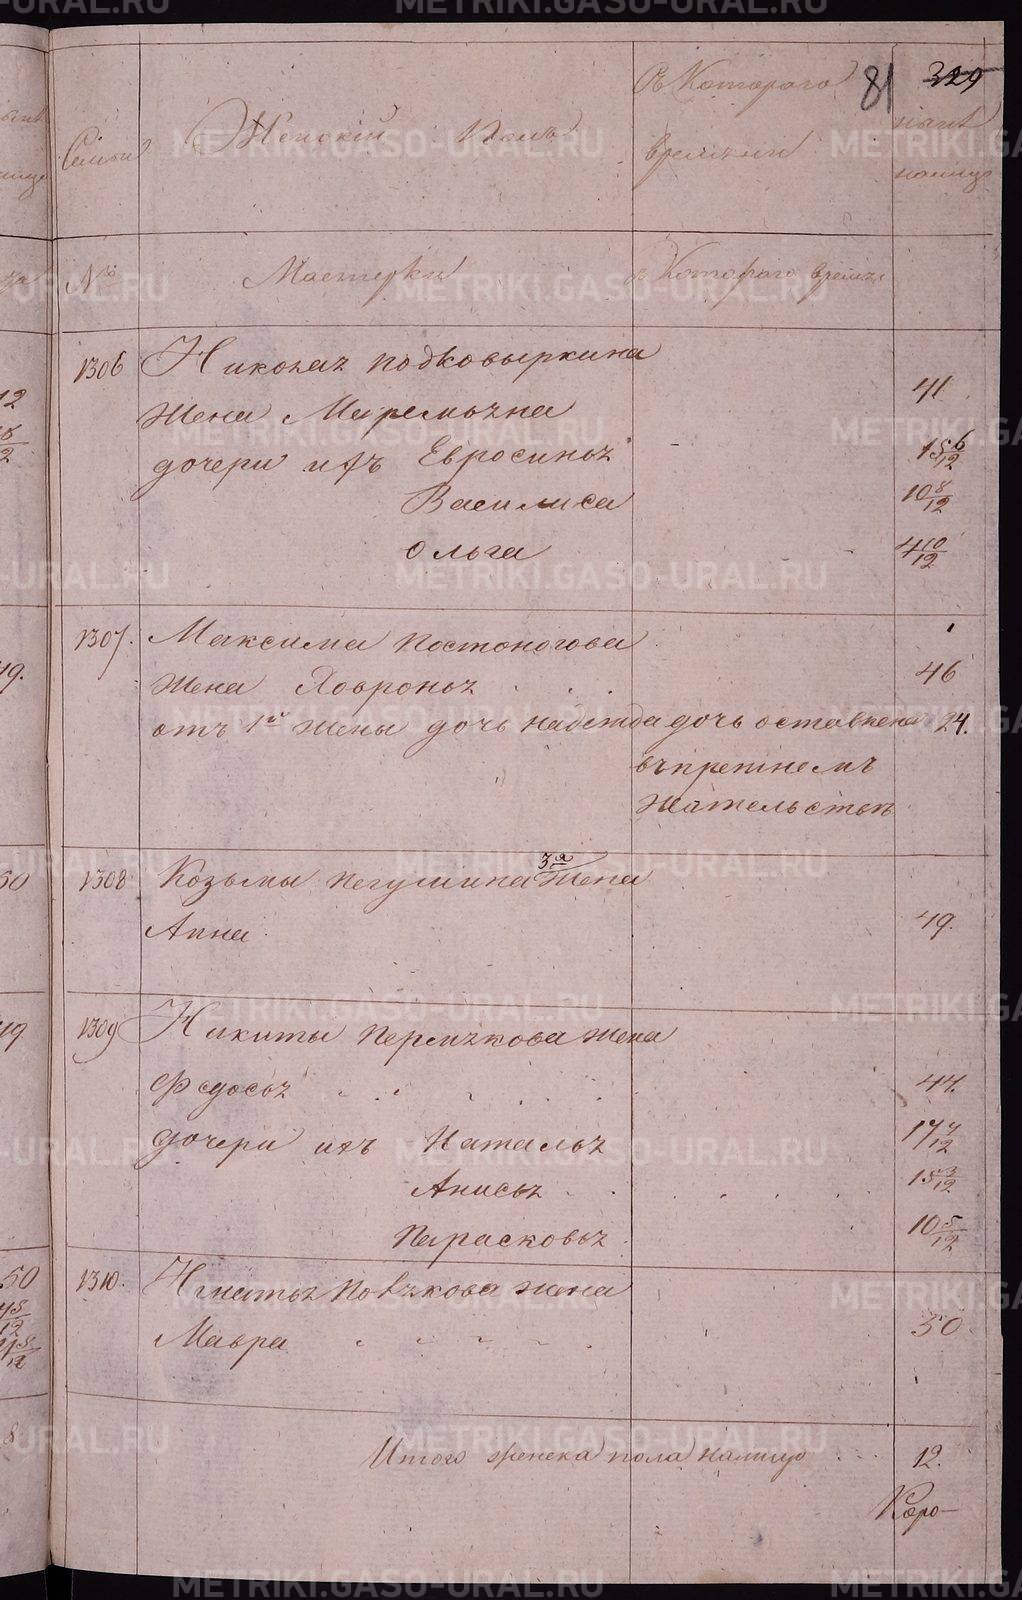 81 329
Семьи Женский Полъ Съ Котораго времени нынѣ налицо
№ Мастерки съ Котораго времен.
1306 Николая подковыркина
жена Маремьяна 41
дочери ихъ Евросинья 15 6/12
Василиса 10 8/12
Ольга 4 10/12
1307. Максима постоногова
жена Ховронья 46
отъ 1ой жены дочь надежда дочь оставлена 24.
въпрежнемъ
жательстве
1308 Козьмы пегушина 3я жена
Анна 49.
1309 Никиты пермякова жена
Федосья 44.
дочери ихъ Наталья 17 7/12
Анисья 15 3/12
Парасковья 10 5/12
1310. Игнатья новякова жена
Мавра 50
Итого женска пола налицо 12.
Коро—
METRIKI.GASO-URAL.RU